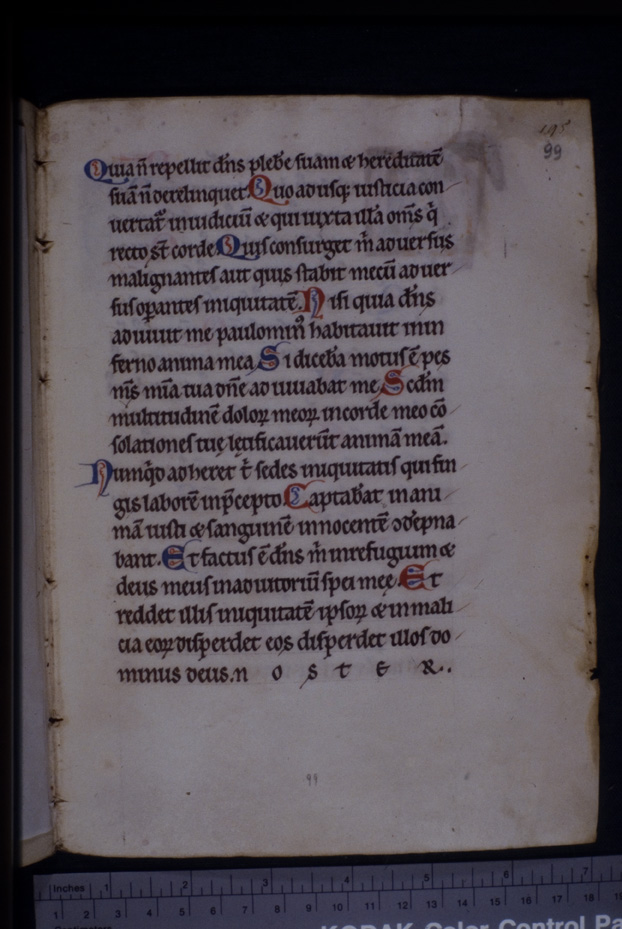 195
99
Quia n̄ repellit dn̄s plebē suam & hereditatē
suā n̄ derelinquet. Quo adusq; iusticia con
uertat᷑ in iudiciū & qui iuxta illā om̄s q̄
recto st̄ corde. Quis consurget m̄ aduersus
malignantes aut quis stabit mecū aduer
sus oꝑantes iniquitatē. Nisi quia dn̄s
adiuuit me paulomin᷒ habitauit in in
ferno anima mea. Si dicebā motus ē pes
m̄s mīa tua dn̄e adiuuabat me. Scd̄m
multitudinē doloꝝ meoꝝ in corde meo cō
solationes tuę lętificauerūt animā meā.
Nunq̇d adheret t̄ sedes iniquitatis qui fin
gis laborē in p̄cepto. Captabāt in ani
mā iusti & sanguinē innocentē ↄdēpna
bant. Et factus ē dn̄s m̄ in refugium &
deus meus in adiutoriū spei meę. Et
reddet illis iniquitatē ipsoꝝ & in mali
cia eoꝝ disperdet eos disperdet illos do
minus deus. n o s t e r..
99
Inches 1 2 3 4 5 6 7
1 2 3 4 5 6 7 8 9 10 11 12 13 14 15 16 17 18 19
Centimetres
KODAK Color Control Pa